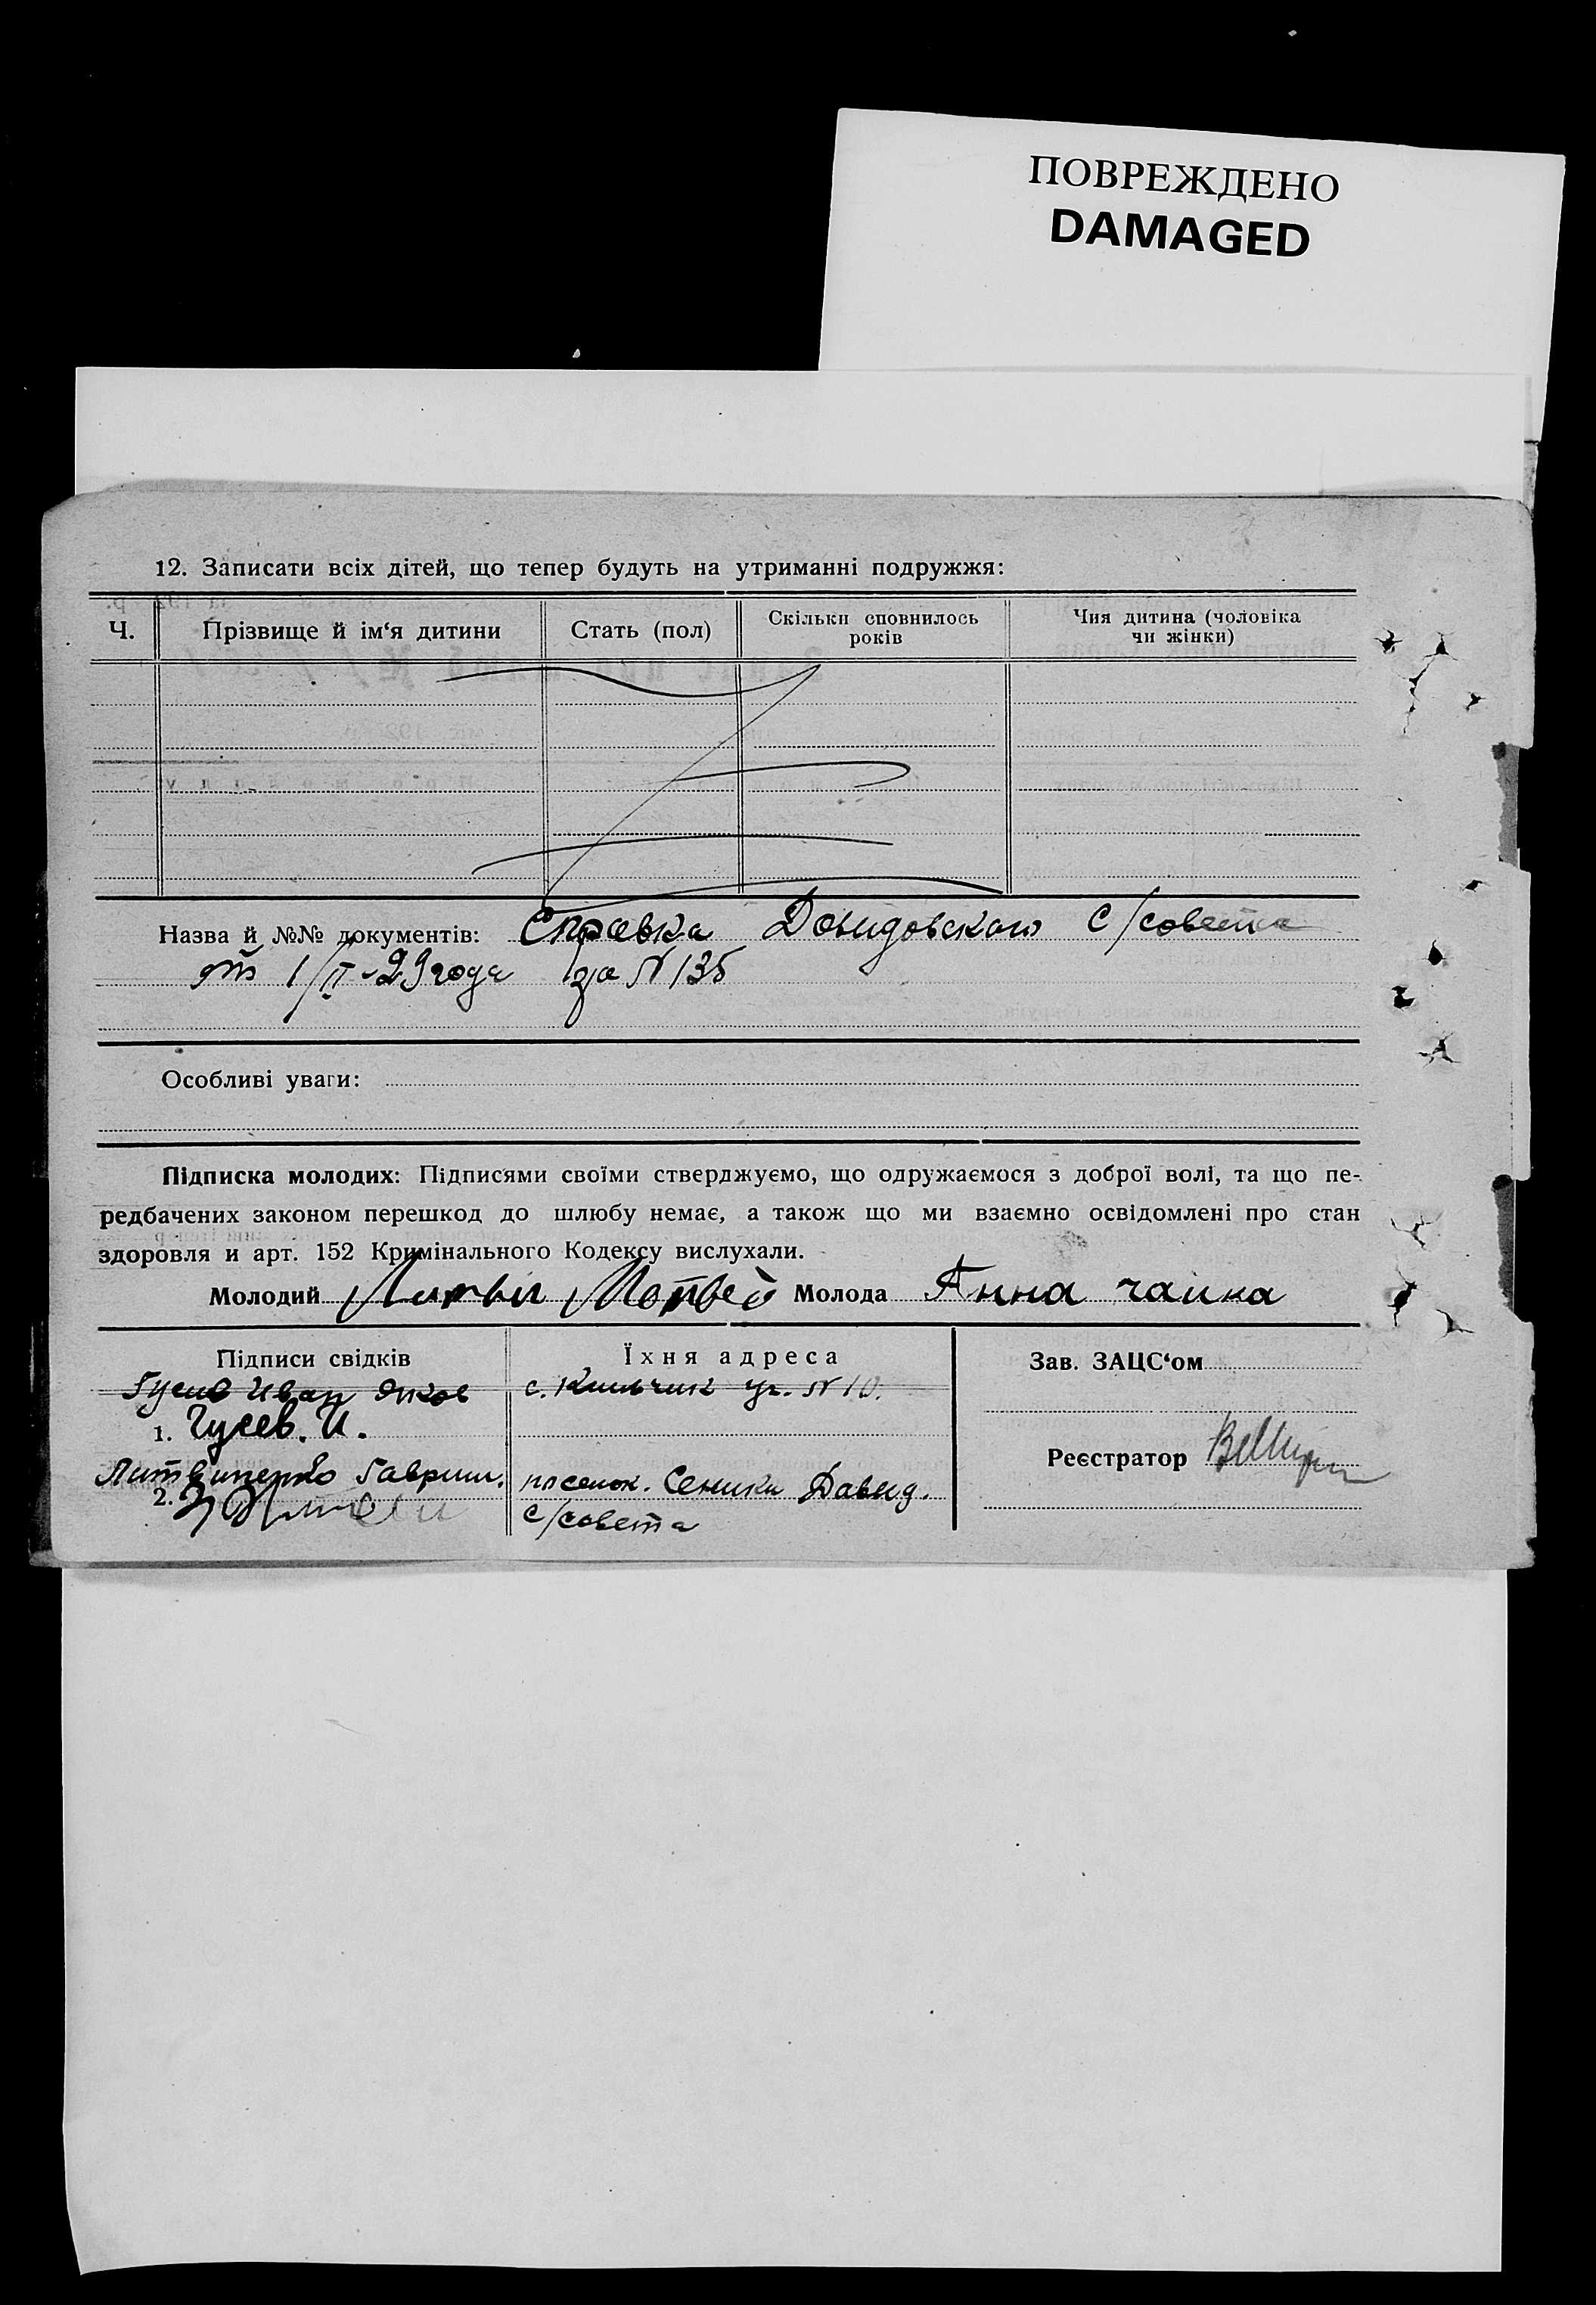 ПОВРЕЖДЕНО
DAMAGED
12. Записати всіх дітей, що тепер будуть на утриманні подружжя:
Ч. Прізвище й ім‘я дитини Стать (пол) Скільки сповнилось років Чия дитина (чоловіка чи жінки)
Назва й №№ документів: Справка Довидовского с/совета
от 1/II-29 года за N 135
Особливі уваги:
Підписка молодих: Підписями своїми стверджуємо, що одружаємося з доброї волі, та що пе-
редбачених законом перешкод до шлюбу немає, а також що ми взаємно освідомлені про стан
здоровля и арт. 152 Кримінального Кодексу вислухали.
Молодий Матвей Молода Анна чаика
Підписи свідків Їхня адреса Зав. ЗАЦС‘ом
Гусив Иван Яков с. ул. N 10.
1. Гусев. И.
Реєстратор
Литвиненко Гаврии. поселок. Сеники Давид.
2.
с/совета